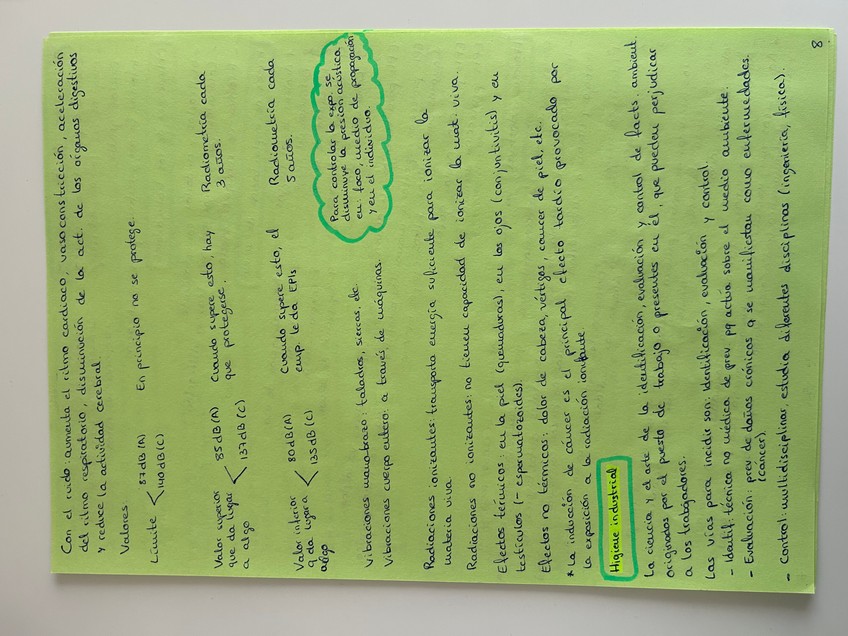 Con el ruido aumenta el ritmo cardíaco, vasoconstricción, aceleración
del ritmo respiratorio, disminución de la act. de los órganos digestivos
y reduce la actividad cerebral.
Valores
Límite < 87dB(A)
140dB(C)
En principio no se protege.
Valor superior
que da lugar
a algo
< 85dB(A)
137dB(C)
Cuando supere esto, hay
que protegerse.
Radiometría cada
3 años.
Valor inferior
q da lugar a
algo
< 80dB(A)
135dB(C)
Cuando supere esto, el
emp. le da EPIs
Radiometría cada
5 años.
Para controlar la expo se
disminuye la presión acústica
en foco, medio de propagación
y en el individuo.
Vibraciones mano-brazo: taladros, sierras, etc
Vibraciones cuerpo entero: a través de máquinas.
Radiaciones ionizantes: transporta energía suficiente para ionizar la
materia viva
Radiaciones no ionizantes: no tienen capacidad de ionizar la mat. viva.
Efectos térmicos: en la piel (quemaduras), en los ojos (conjuntivitis) y en
testículos (- espermatozoides).
Efectos no térmicos: dolor de cabeza, vértigos, cáncer de piel, etc.
* La inducción de cáncer es el principal efecto tardío provocado por
la exposición a la radiación ionizante
Higiene industrial
La ciencia y el arte de la identificación, evaluación y control de facts. ambient.
originados por el puesto de trabajo o presentes en él, que puedan perjudicar
a los trabajadores.
Las vías para incidir son: identificación, evaluación y control.
- Identif: técnica no médica de prev pq actúa sobre el medio ambiente.
- Evaluación: prev de daños crónicos q se manifiestan como enfermedades.
(cáncer).
- Control: multidisciplinar, estudia diferentes disciplinas (ingeniería, física).
8